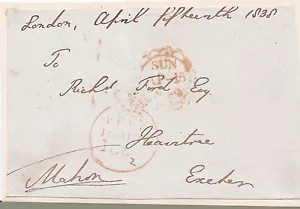 London, April fifteenth 1838
To
SUN
AP 15
Richd Ford Esq
Heavitree
Mahon
Exeter